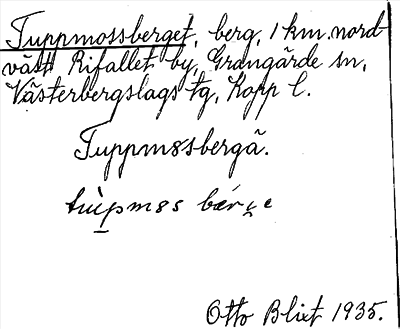 Tuppmossberget, berg, 1 km. nord-
väst Rifallet by, Grangärde sn,
Västerbergslags tg, Kopp l.
Tuppm8sbergä.
Otto Blixt 1935.